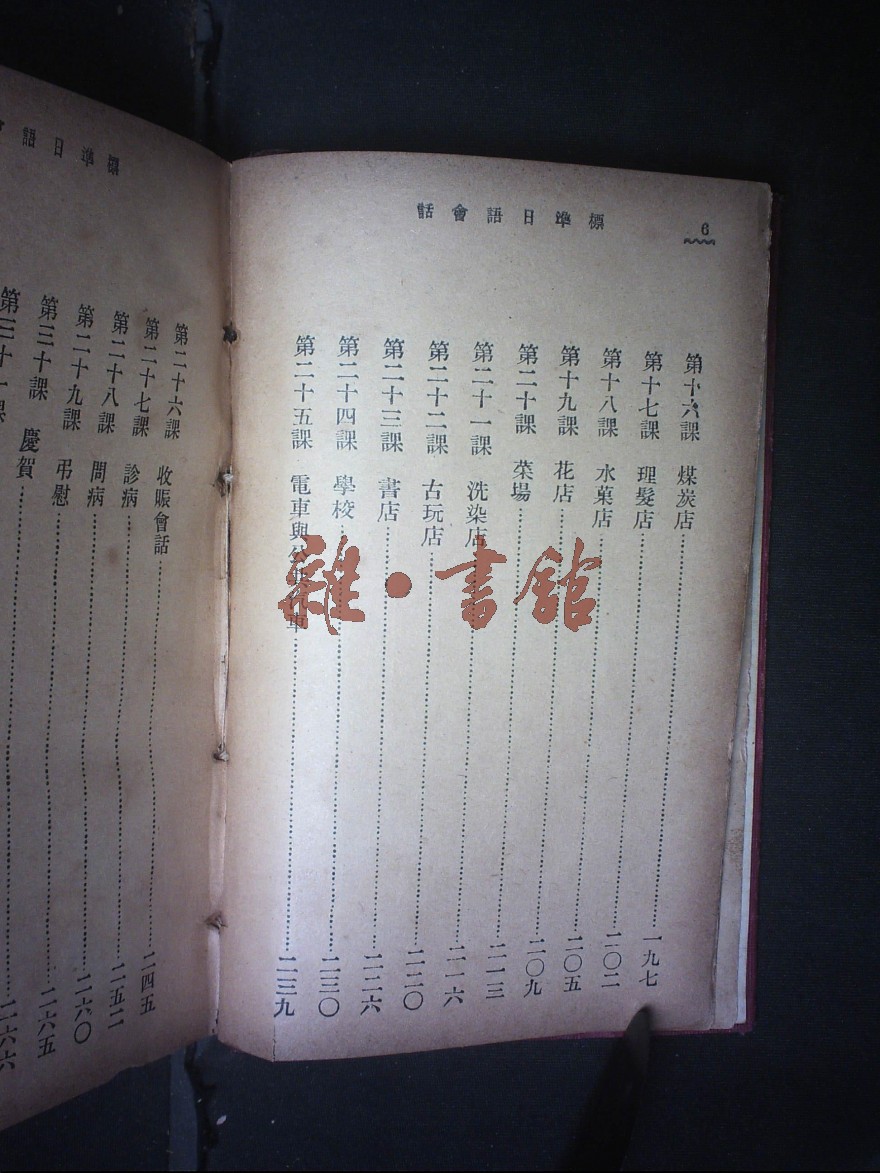 標準日語會
6
標準日語會話
第十六課 煤炭店 一九七
第十七課 理髮店 二〇二
第十八課 水菓店 二〇五
第十九課 花店 二〇九
第二十課 菜場 二一三
第二十一課 洗染店 二一六
第二十二課 古玩店 二二〇
第二十三課 書店 二二六
第二十四課 學校 二三〇
第二十五課 電車與公 車 二三九
第二十六課 收賬會話 二四五
第二十七課 診病 二五二
第二十八課 問病 二六〇
第二十九課 弔慰 二六五
第三十課 慶賀 二六六
第三十一課
雜·書館